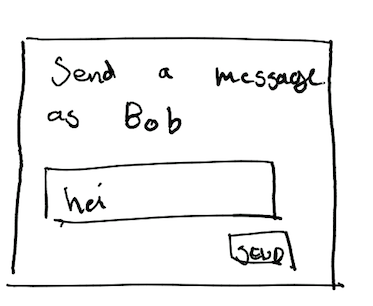 Send a message
as Bob
hei
SEND